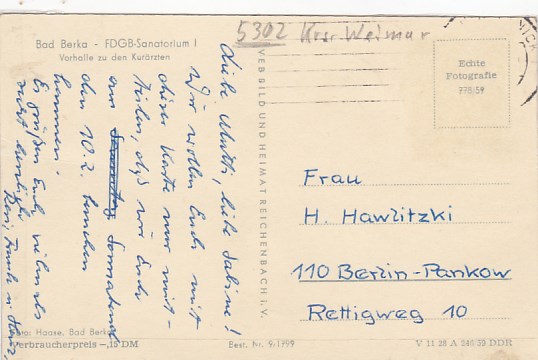 5302 Krs. Weimar
Bad Berka – FDGB-Sanatorium I
Vorhalle zu den Kurärzten
Echte
Fotografie
778/59
Liebe Mutti, liebe Sabine!
Wir wollen Euch mit
dieser Karte nur mit-
teilen, daß wir Euch
am Sonnabend
den 10.2. besuchen
kommen.
Es grüßen Euch vielmals
recht herzlich
VEB BILD UND HEIMAT REICHENBACH I. V.
Frau
H. Hawlitzki
110 Berlin-Pankow
Rettigweg 10
Foto: Haase, Bad Berka
Verbraucherpreis –,15 DM
Best. Nr. 9/1799
V 11 28 A DDR